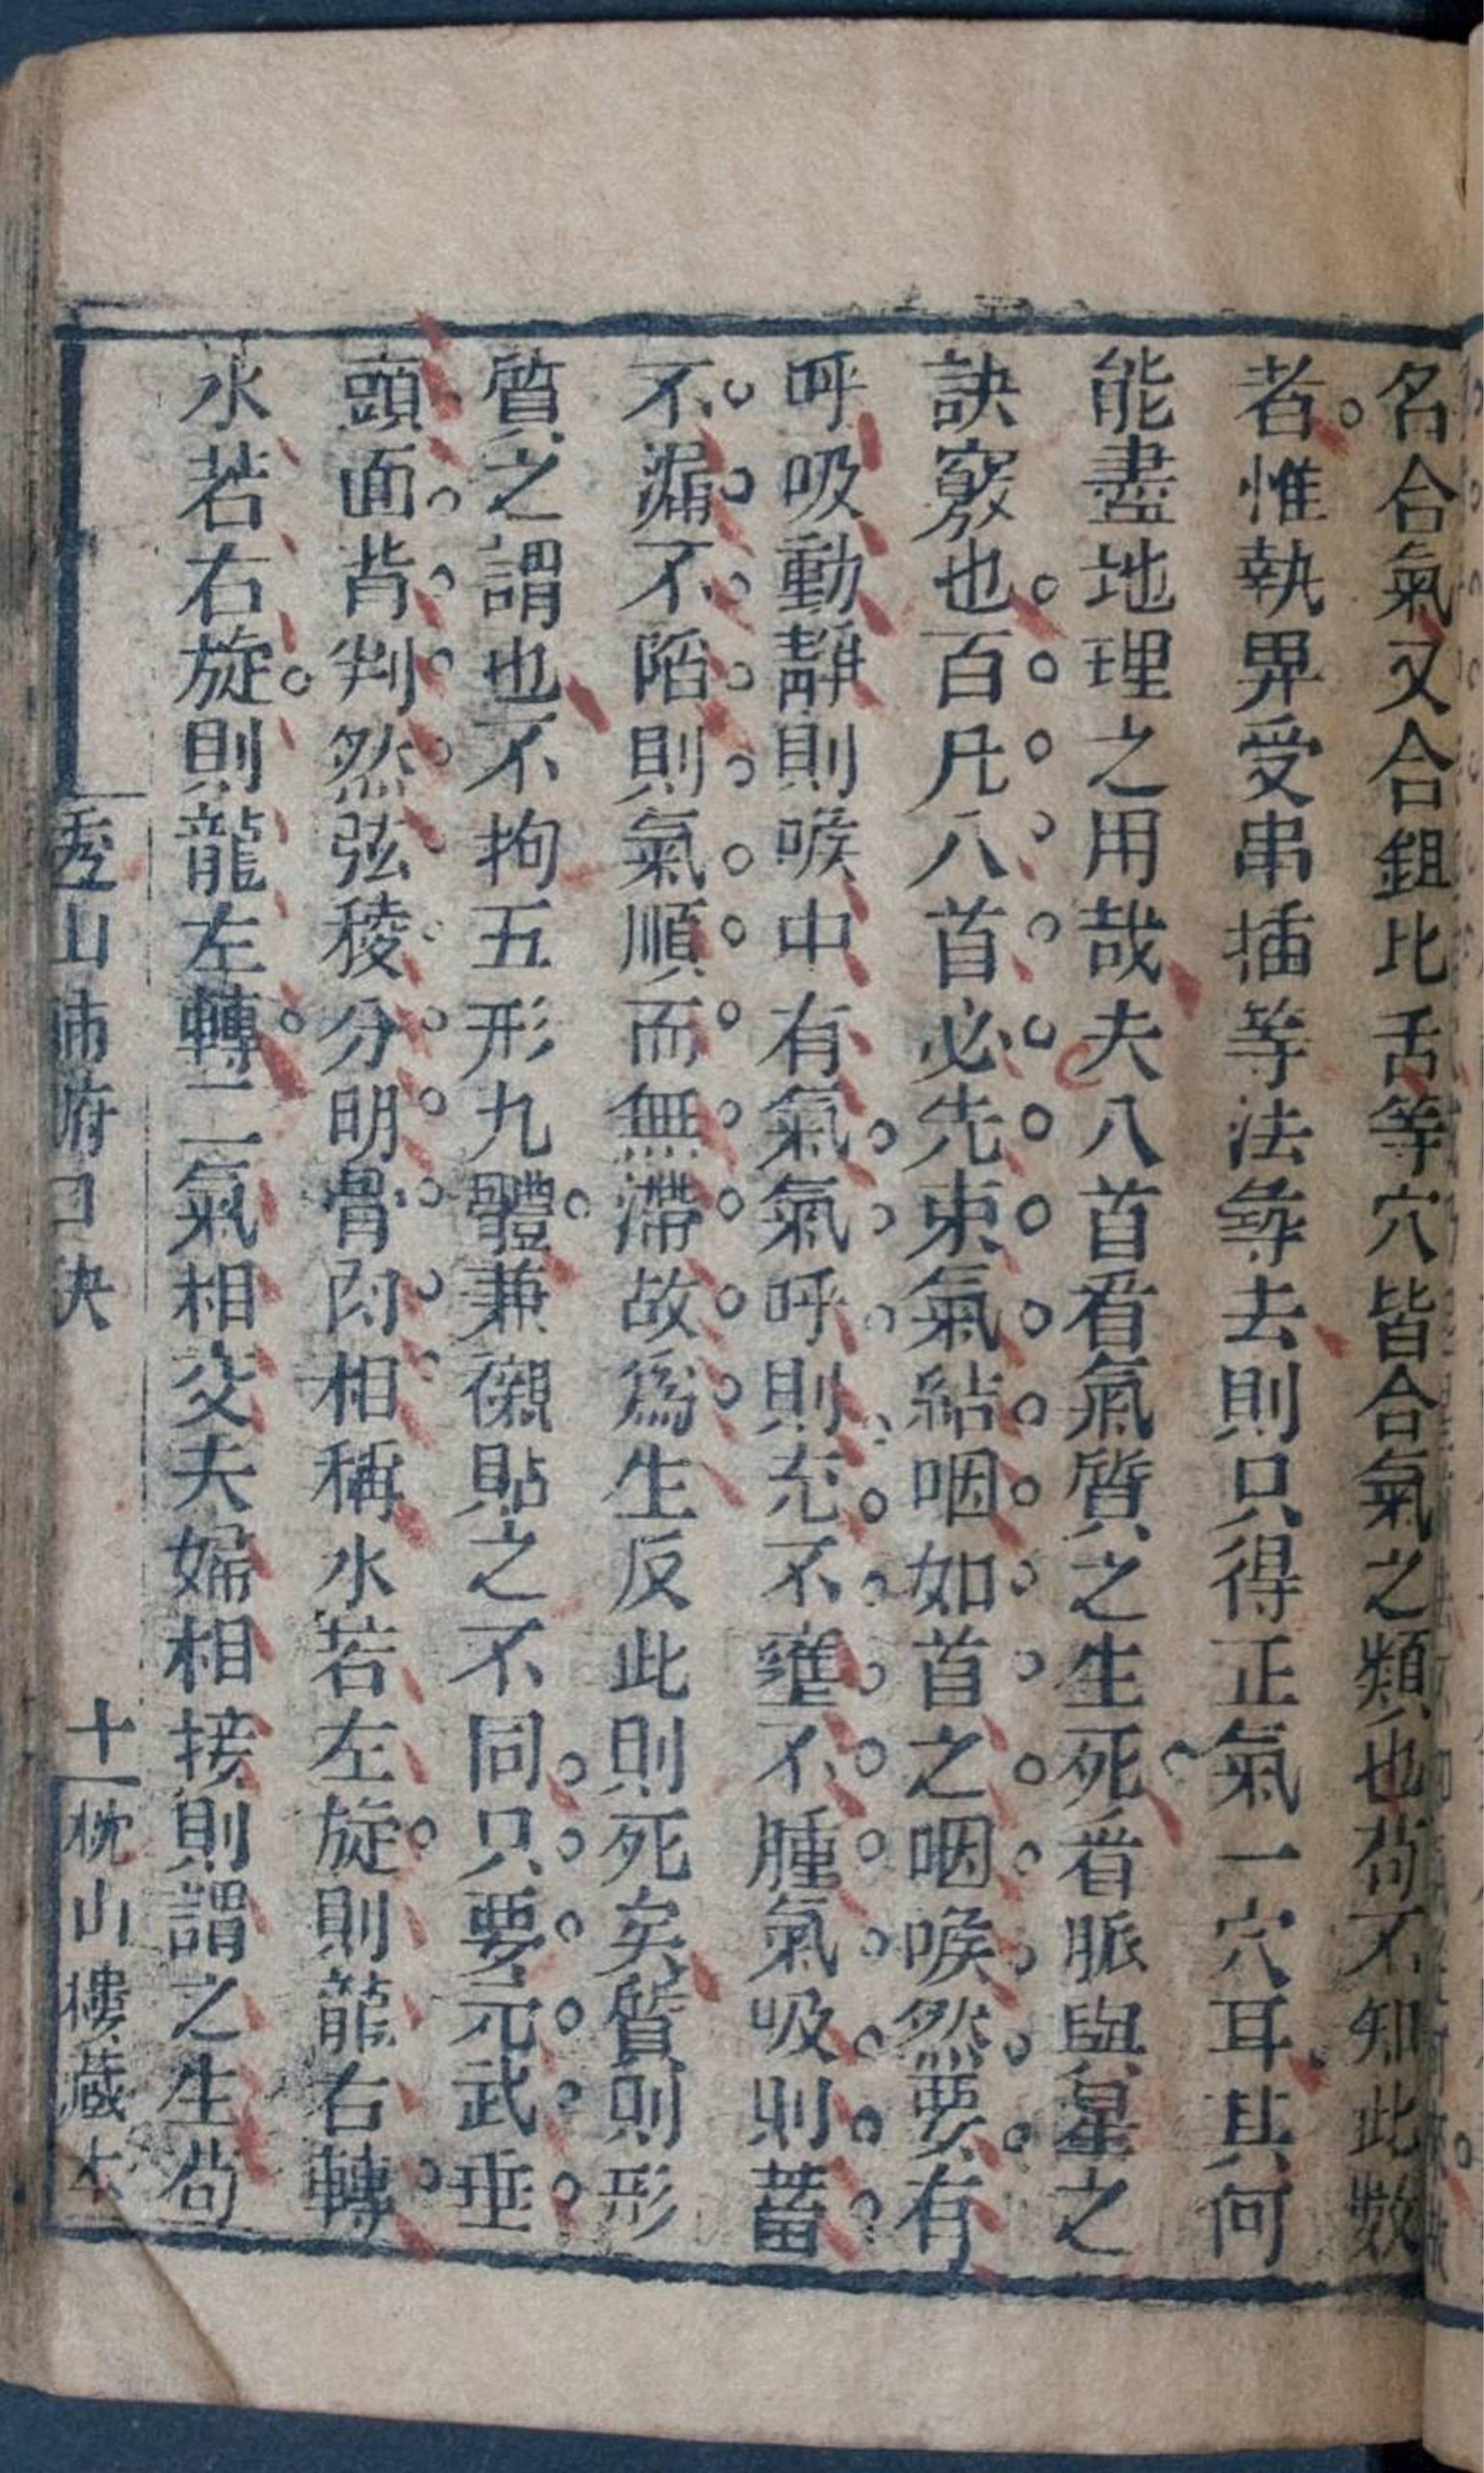 名合氣又合鉏比舌等穴皆合氣之類也苟不知此數
者惟執界受串插等法尋去則只得正氣一穴耳其何
能盡地理之用哉夫八首看氣質之生死看脈與星之
訣竅也百凡八首必先束氣結咽如首之咽喉然要有
呼吸動靜則喉中有氣氣呼則充不壅不腫氣吸則蓄
不漏不陷則氣順而無滯故爲生反此則死矣質則形
質之謂也不拘五形九體兼襯貼之不同只要元武垂
頭面背判然弦稜分明骨肉相稱水若左旋則龍右轉
水若右旋則龍左轉二氣相交夫婦相接則謂之生苟
山 府口訣
十一
枕山樓藏本